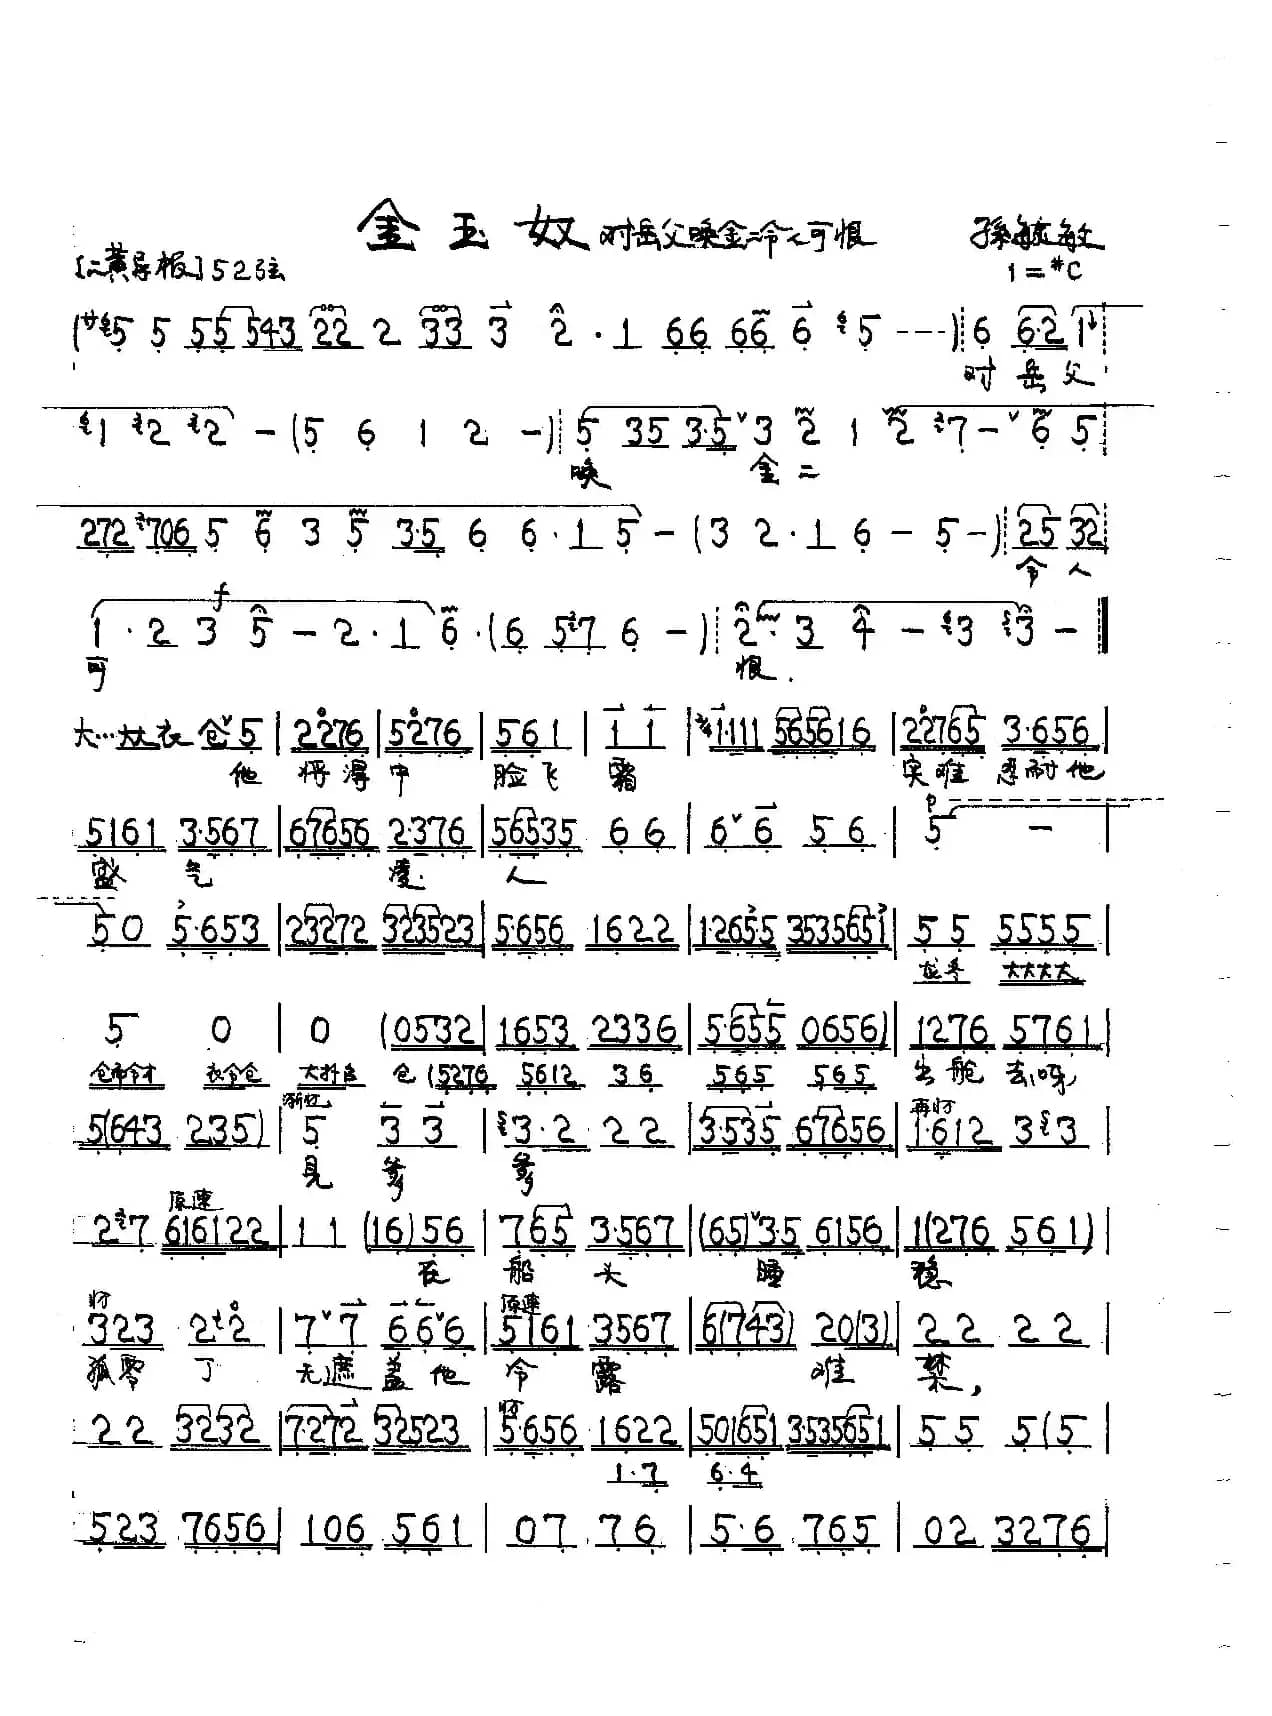 金玉奴 对岳父唤金二令人可恨 孫毓敏
[二黄导板] 52弦 1=#C
(サ5 5 55 543 22 2 33 3 2·1 66 66 6 5 ---) 6 6·2 1
对岳父
1 2 2 - (5 6 1 2 -) 5 35 3·5 3 2 1 2 7 - 6 5
唤 金二
272 706 5 6 3 5 3·5 6 6·1 5 - (3 2·1 6 - 5 -) 25 32
令人
f
1·2 3 5 - 2·1 6·(6 57 6 -) 2·3 4 - 3 3 -
可 恨.
大…大大衣 仓 5 | 2276 | 5276 | 561 | 1 1 | 1·111 565616 | 22765 3·656 |
他 将淂中 脸飞霜 实难 忍耐他
5161 3·567 | 67656 2·376 | 56535 66 | 6 6 56 | 5 - |
盛 气 凌 人
50 5·653 | 23272 323523 | 5·656 1622 | 1·2655 3535651 | 55 5555 |
龙冬 大大大大
5 0 | 0 (0532 | 1653 2336 | 5·655 0656) | 1276 5761 |
仓 衣令仓 仓 (5276 5612 36 565 565 出舱去呀
渐忙 再忙
5(643 235) | 5 33 | 3·2 22 | 3·535 67656 | 1·612 33 |
見爹 爹
原速
27 616122 | 11 (16)56 | 765 3·567 | (65)3·5 6156 | 1(276 561) |
在 船 头 睡 稳
忙 原速
323 22 | 77 666 | 5161 3567 | 6(743) 20(3) | 22 22 |
孤零 丁 无遮盖他 令 露 难 禁,
忙
22 3232 | 7·272 32523 | 5·656 1622 | 501651 3·535651 | 55 5(5
1·7 6·4
523 7656 | 106 561 | 07 76 | 5·6 765 | 02 3276 |